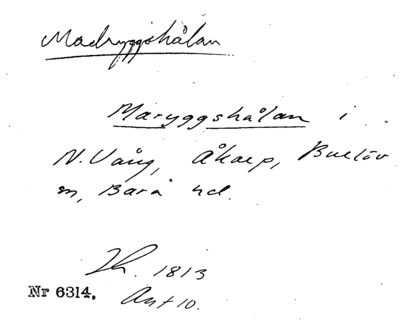 Madryggshålan
Maryggshålan i
N. Vång, Åkarp, Burlöv
sn, Bara hd.
1813
Nr 6314. Ant 10.